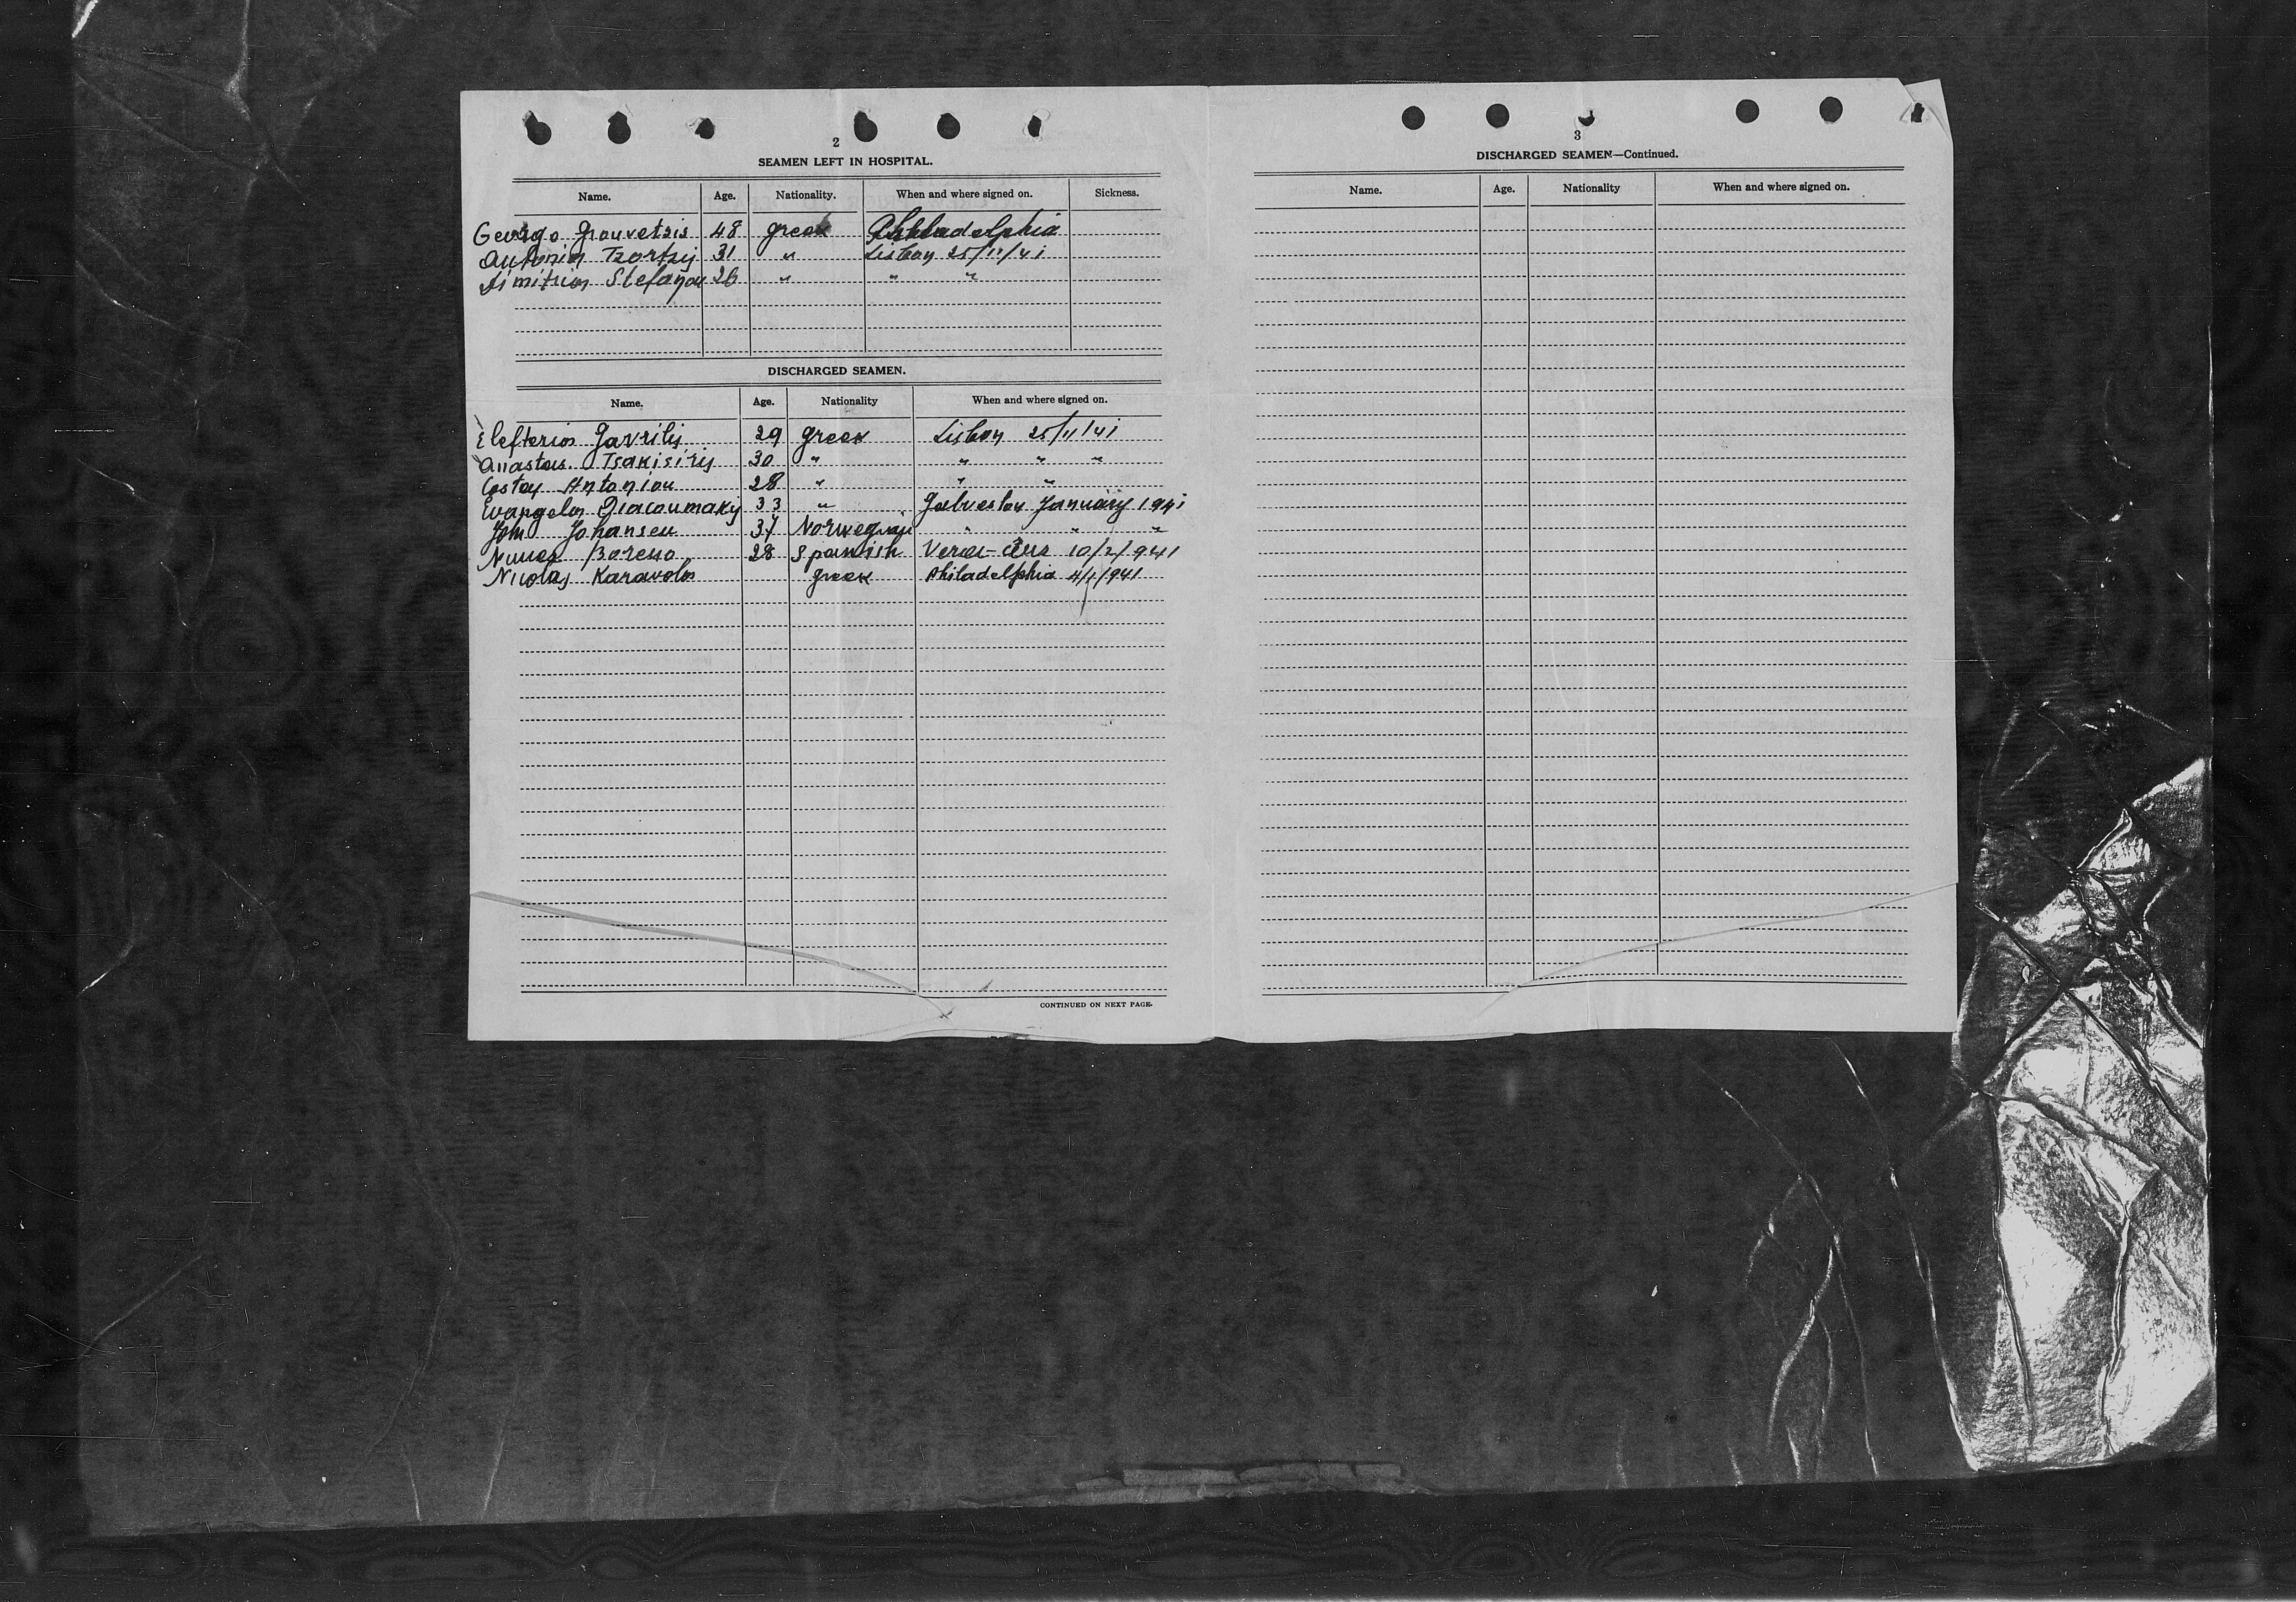 2
SEAMEN LEFT IN HOSPITAL.
Name. Age. Nationality. When and where signed on. Sickness.
George Grouvetsis 48 greek Philadelphia
Antonin Tzortzis 31 " Lisbon 25/11/41
Dimitrios Stefanou 26 " " "
DISCHARGED SEAMEN.
Name. Age. Nationality When and where signed on.
Elefterios Gavrilis 29 greek Lisbon 25/11/41
Anastas. Tsakisiris 30 " " " "
Costas Antoniou 28 " " "
Evangelos Giacoumakis 33 " Galveston January 1941
John Johansen 37 Norwegian " " "
Nunes 28 Spanish Vera-Crus 10/2/941
Nicolas Karavolos greek Philadelphia 4/1/941
CONTINUED ON NEXT PAGE.
3
DISCHARGED SEAMEN—Continued.
Name. Age. Nationality When and where signed on.